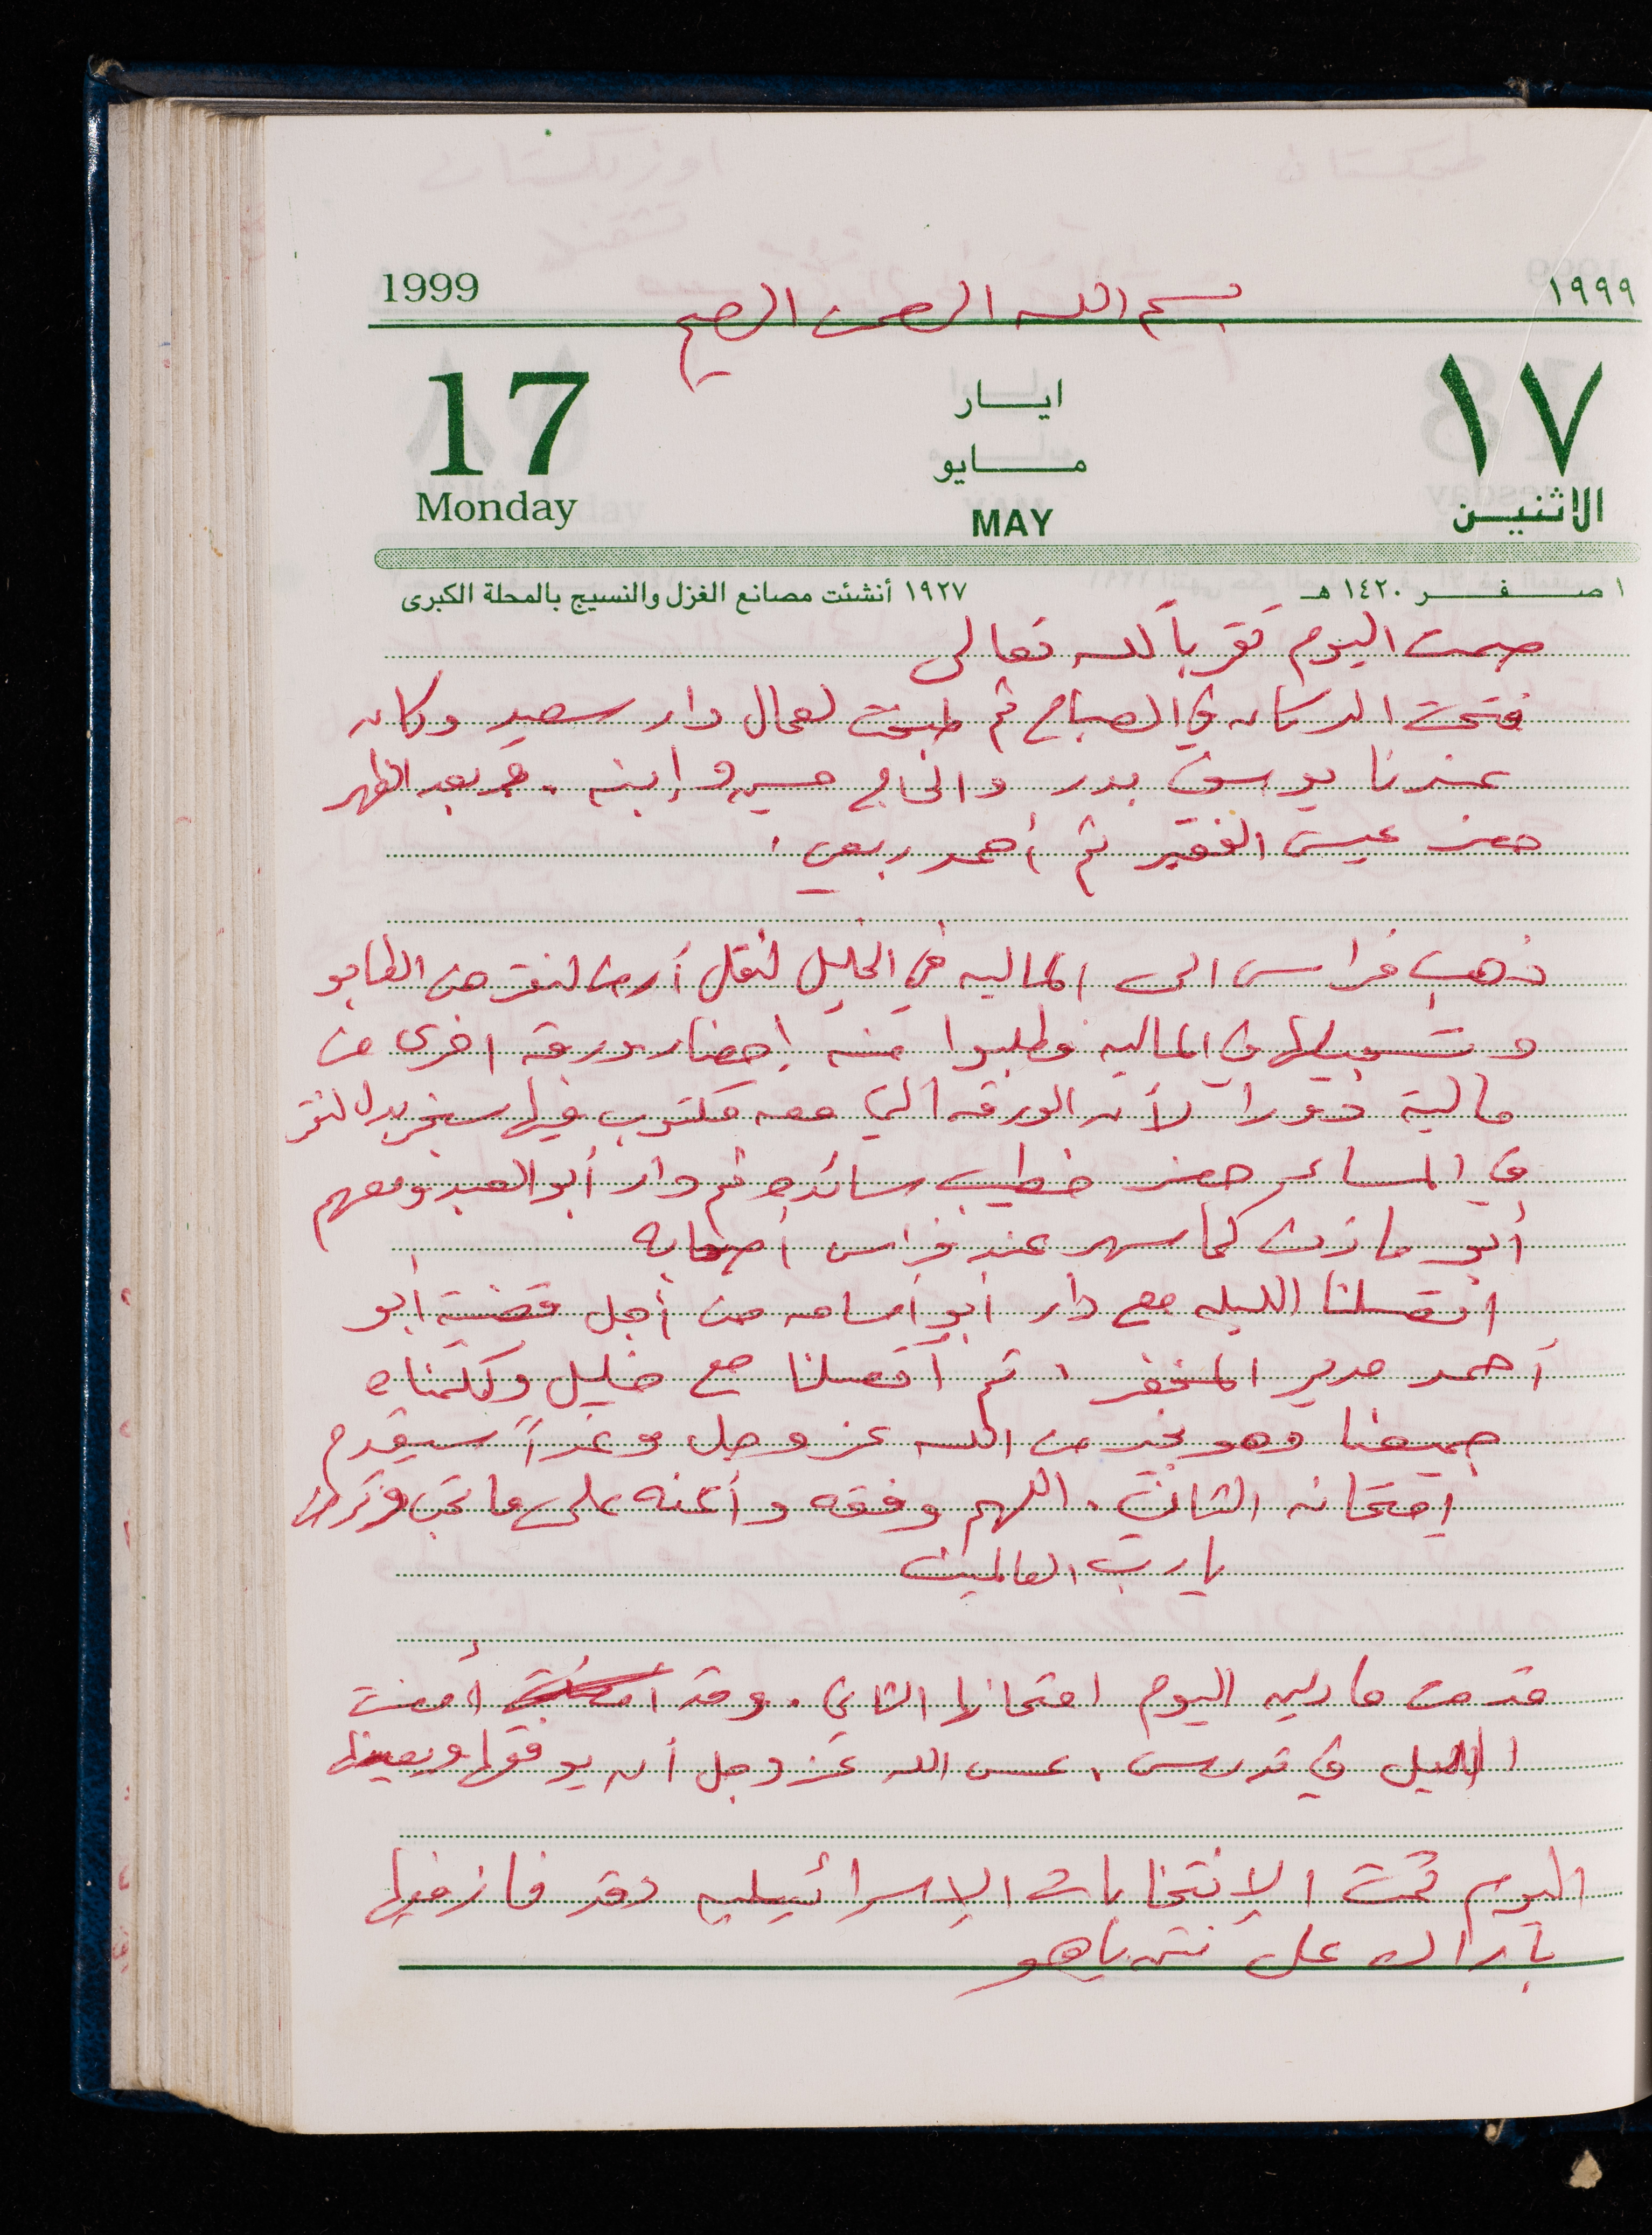 1999 بسم الله الرحمن الرحيم ١٩٩٩
17 ايــار ١٧
مـــايو
Monday MAY الاثنيـن
١ صـــفـــر ١٤٢٠ هـ ١٩٢٧ أنشئت مصانع الغزل والنسيج بالمحلة الكبرى
صمت اليوم تقرباً لله تعالى
فتحت الدكان في الصباح ثم طبخت لعمال دار سعيد وكان
عندنا يوسف بدر والحاج حسين وإبنه . وبعد الظهر
حضر عيسى الفقير ثم أحمد ربعي .
ذهب فراس الى المالية في الخليل لنقل أرض لنقر من الطابو
وتسجيلها في المالية فطلبوا منه إحضار ورقه اخرى من
مالية دورا لأن الورقه التي معه مكتوب فيها سنجر بدل لنقر
في المساء حضر خطيب سائده ثم دار أبو العبد ومعهم
أبو مازن كما سهر عند فراس أصحابه
اتصلنا الليله مع دار أبو أسامه من أجل قضية أبو
أحمد مدير المخفر . ثم اتصلنا مع خليل وكلمناه
جميعنا وهو بخير من الله عز وجل وغداً سيقدم
إمتحانه الثاني . اللهم وفقه وأعنه على ما تحب وترضى
يا رب العالمين
قدمت مارلين اليوم امتحانها الثاني . وقد أمضت
الليل في تدرس . عسى الله عز وجل أن يوفقها ويعينها
اليوم تمت الإنتخابات الإسرائيليه وقد فاز فيها
باراك على نتنياهو